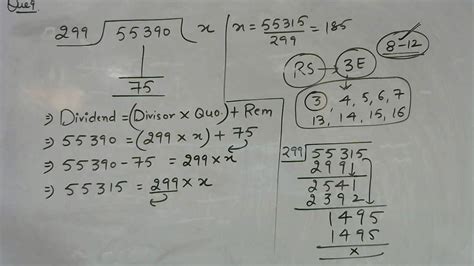 Que 9
299 ) 55390 ( x
75
⇒ Dividend = (Divisor × Quo.) + Rem
⇒ 55390 = (299 × x) + 75
⇒ 55390 - 75 = 299 × x
⇒ 55315 = 299 × x
x = 55315/299 = 185
8-12
RS → 3E
3, 4, 5, 6, 7
13, 14, 15, 16
299 ) 55315
299
2541
2392
1495
1495
x